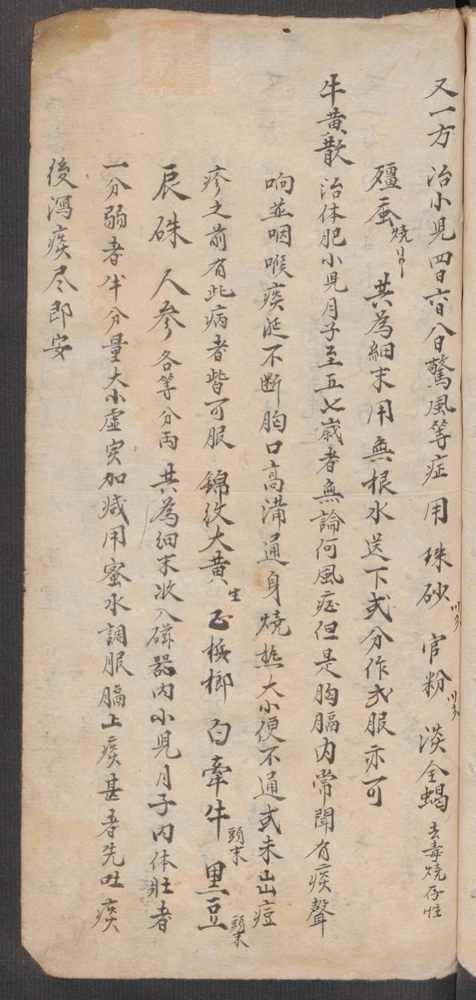 又一方 治小児四日六日八日驚風等症 用 珠砂 官粉 淡全蝎 去毒燒存性
殭蚕 燒 共為細末用無根水送下弍分作弍服亦可
牛黄散 治体肥小児月子至五七嵗者無論何風症但是胸膈内常聞有痰聲
响並咽喉痰涎不断胸口高满通身燒热大小便不通或未出痘
疹之前有此病者皆可服 錦紋大黄 生 正梹榔 白牽牛 頭末 黒豆 頭末
辰硃 人参 各等分両 共為細末收入磁器内小児月子内体壮者
一分弱者半分量大小虚实加减用蜜水調服膈上痰甚者先吐痰
後瀉痰尽即安